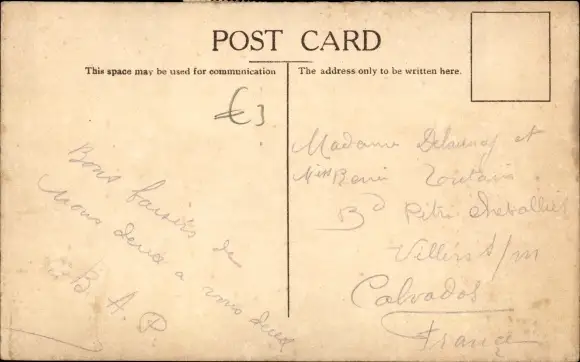 POST CARD
This space may be used for communication
The address only to be written here.
€3
Bons baisers de
nous deux a vous deux
B. A. R
Madame Delaunay et
Bd Pitre Chevallier
Villers s/m
Calvados
France